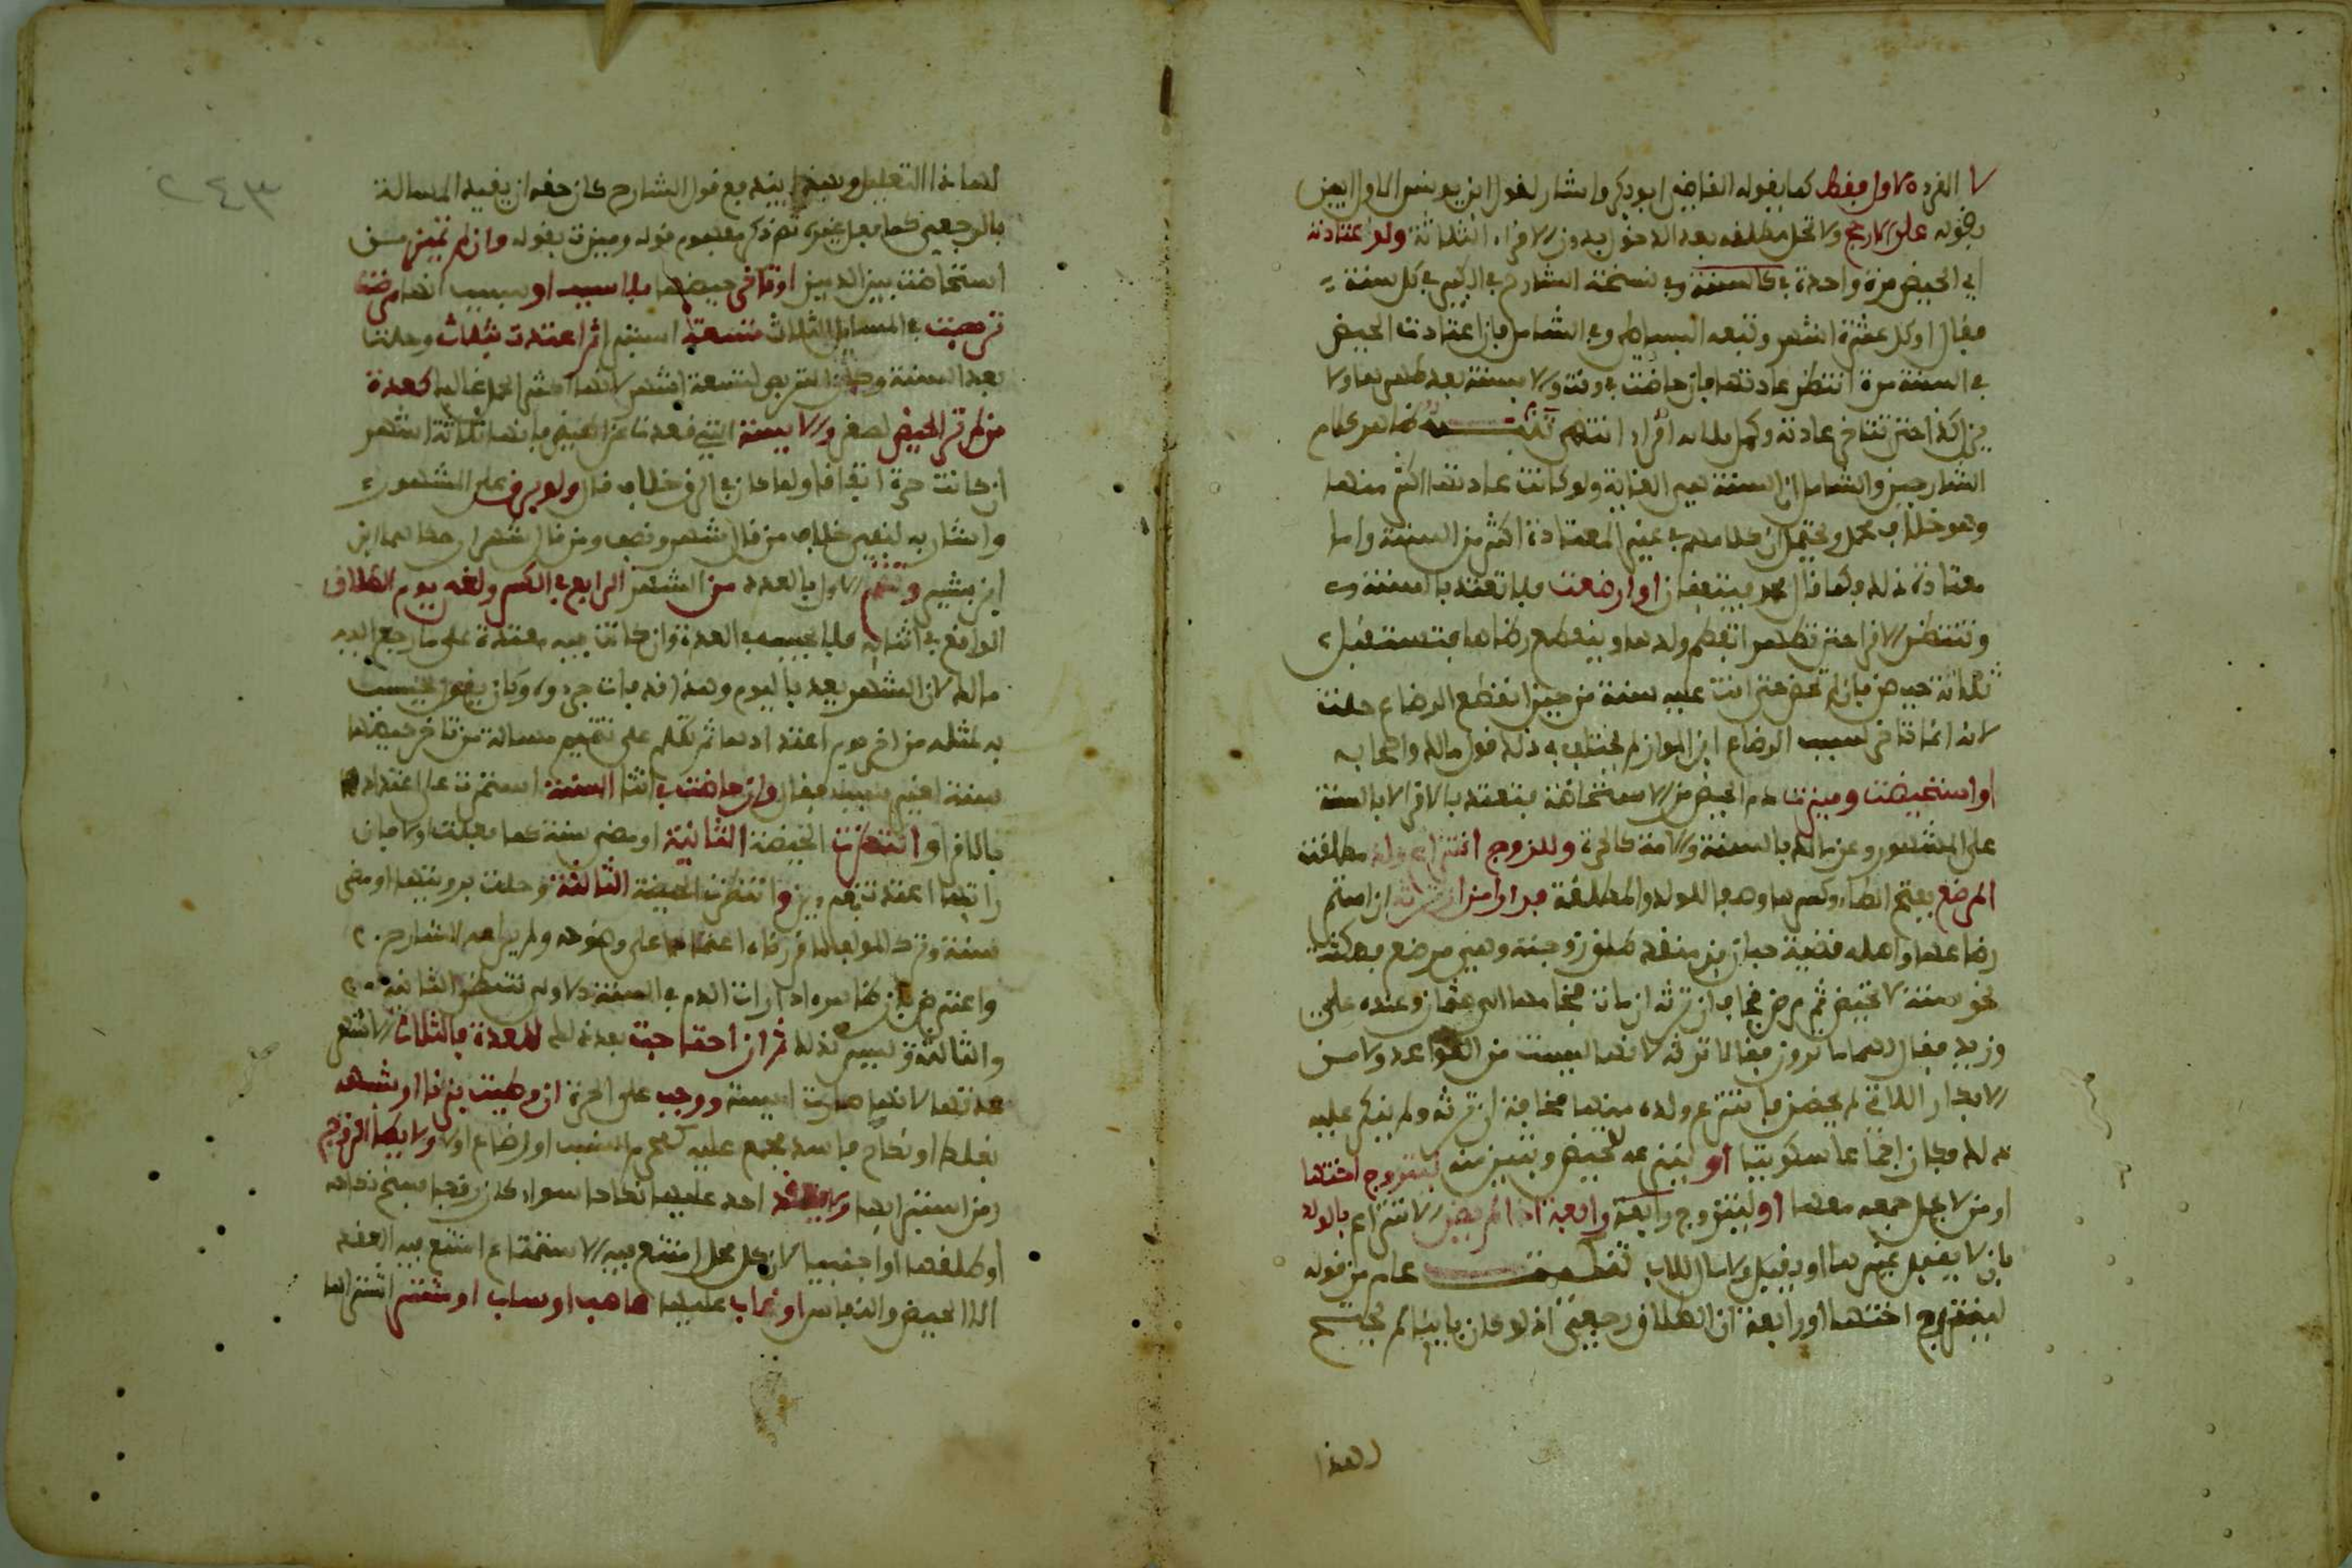 لا القرء الاول فقط كما يقوله القاضي ابو بكر واشار لقول ابن يونس الاول ابين
بقوله على الارجح ولا تحل مطلقة بعد الدخول بدون الاقراء الثلاثة ولو اعتادته
اي الحيض مرة واحدة في كالسنة وفي نسخة الشارح في الكبير في كل سنة
فقال او كل عشرة اشهر وتبعه البساطي وفي الشامل فان اعتادت الحيض
في السنة مرة انتظر عادتها فان حاضت في وقته والا بسنة بعد طهرها ولا
يزال كذا حتى تتاخر عادته وكمل ثلاثة اقراء انتهى تنبيه ظاهر كلام
الشارحين والشامل ان السنة هي الغاية ولو كانت عادتها اكثر منها
وهو خلاف محل ويحتمل ان كلامهم في غير المعتادة اكثر من السنة واما
معتادة ذلك فكما قال محمد فيتفقان او ارضعت فلا تعتد بالسنة
وتنتظر الاقراء حتى تطهر انفطم ولدها وينقطع رضاعها فتستقبل
ثلاثة حيض فان لم تحض حتى اتت عليه سنة من حين انقطع الرضاع حلت
لانه انما تاخر لسبب الرضاع ابن المواز لم يختلف في ذلك قول مالك واصحابه
او استحيضت وميزت دم الحيض من الاستحاضة فتعتد بالاقراء لا بالسنة
على المشهور وعن مالك بالسنة والامة كالحرة وللزوج انتزاع ولد مطلقته
المرضع بفتح الطاء وكسرها وهي الولد والمطلقة فرارا من ان ترثه ان استمر
رضاعها واصله قضية حبان بن منقذ طلق زوجته وهي مرضع فمكثت
نحو سنة لا تحيض ثم مرض فخاف ان ترثه ان مات فخاصمها الى عثمان وعنده علي
وزيد فقال لهما ما ترون فقالا ترثه لانها ليست من القواعد ولا من
الابكار اللاتي لم يحضن فانتزع ولده منها مخافة ان ترثه ولم ينكر عليه
ذلك فكان اجماعا سكوتيا او لينتزعه لتحيض وتبين منه ليتزوج اختها
او من لا يحل جمعه معها او ليتزوج رابعة واقعة اذا لم يضر الانتزاع بالولد
بان لا يقبل غيرها او يقبل ولا مال للاب تنبيه علم من قوله
ليتزوج اختها او رابعة ان الطلاق رجعي اذ لو كان باينا لم يحتج
لهذا
لهذا التعليل وبهذا يندفع قول الشارح كان حقه ان يقيد المسالة
بالرجعي كما فعل غيره ثم ذكر مفهوم قوله وميزت بقوله وان لم تميز من
استحاضت بين الدمين او تاخر حيضها بلا سبب او بسبب انها مرضت
تربصت في المسايل الثلاث تسعة استبراء ثم اعتدت بثلاث وحلت
بعد السنة وجعلنا التربص لتسعة اشهر لانها اكثر الحمل غالبا كعدة
من لم تر الحيض لصغر والايسة التي قعدت عن الحيض فانها ثلاثة اشهر
ان كانت حرة اتفاقا ولما كان في الرق خلاف قال ولو برق على المشهور
واشار به لنفي خلاف من قال شهر ونصف ومن قال شهران حكاهما ابن
ابن بشير وتتم الاول بالعدد من الشهر الرابع في الكسر ولغي يوم الطلاق
الواقع في اثنايه فلا يحسب في العدة وان كانت فيه معتدة على ما رجع اليه
مالك لان الشهر يعد باليوم وهذا قد فات جزءه وكان يقول يحتسب
به لمثله من اخر يوم اعتدادها ثم تكلم على تتميم مسالة من تاخر حيضها
سنة لغير سبب فقال وان حاضت في اثناء السنة استمرت على اعتدادها
بالاقراء وانتظرت الحيضة الثانية او مضي سنة كما فعلت اولا فان
راتها اعتدت بقرءين وانتظرت الحيضة الثالثة وحلت برويتها او مضي
سنة وترك المولف لما قررناه اعتمادا على وضوحه ولم يراعه الشارح
واعترض بان ظاهره اذا رات الدم في السنة الاولى تنتظر الثانية
والثالثة وليس كذلك ثم ان احتاجت بعد ذلك لعدة فالثلاثة الاشهر
عدتها لانها صارت ايسة ووجب على الحرة ان وطيت بزنا او شبهه
بغلط او نكاح فاسد مجمع عليه كمحرم النسب او رضاع اولا ولا يطا الزوج
زمن استبرايها ولا يعقد احد عليها نكاحا سواء كان زوجا فسخ نكاحه
او طلقها او اجنبيا لان كل محل امتنع فيه الاستمتاع امتنع فيه العقد
الا الحيض والنفاس او غاب عليها غاصب او ساب او مشتر اشتراها
٢٤٣